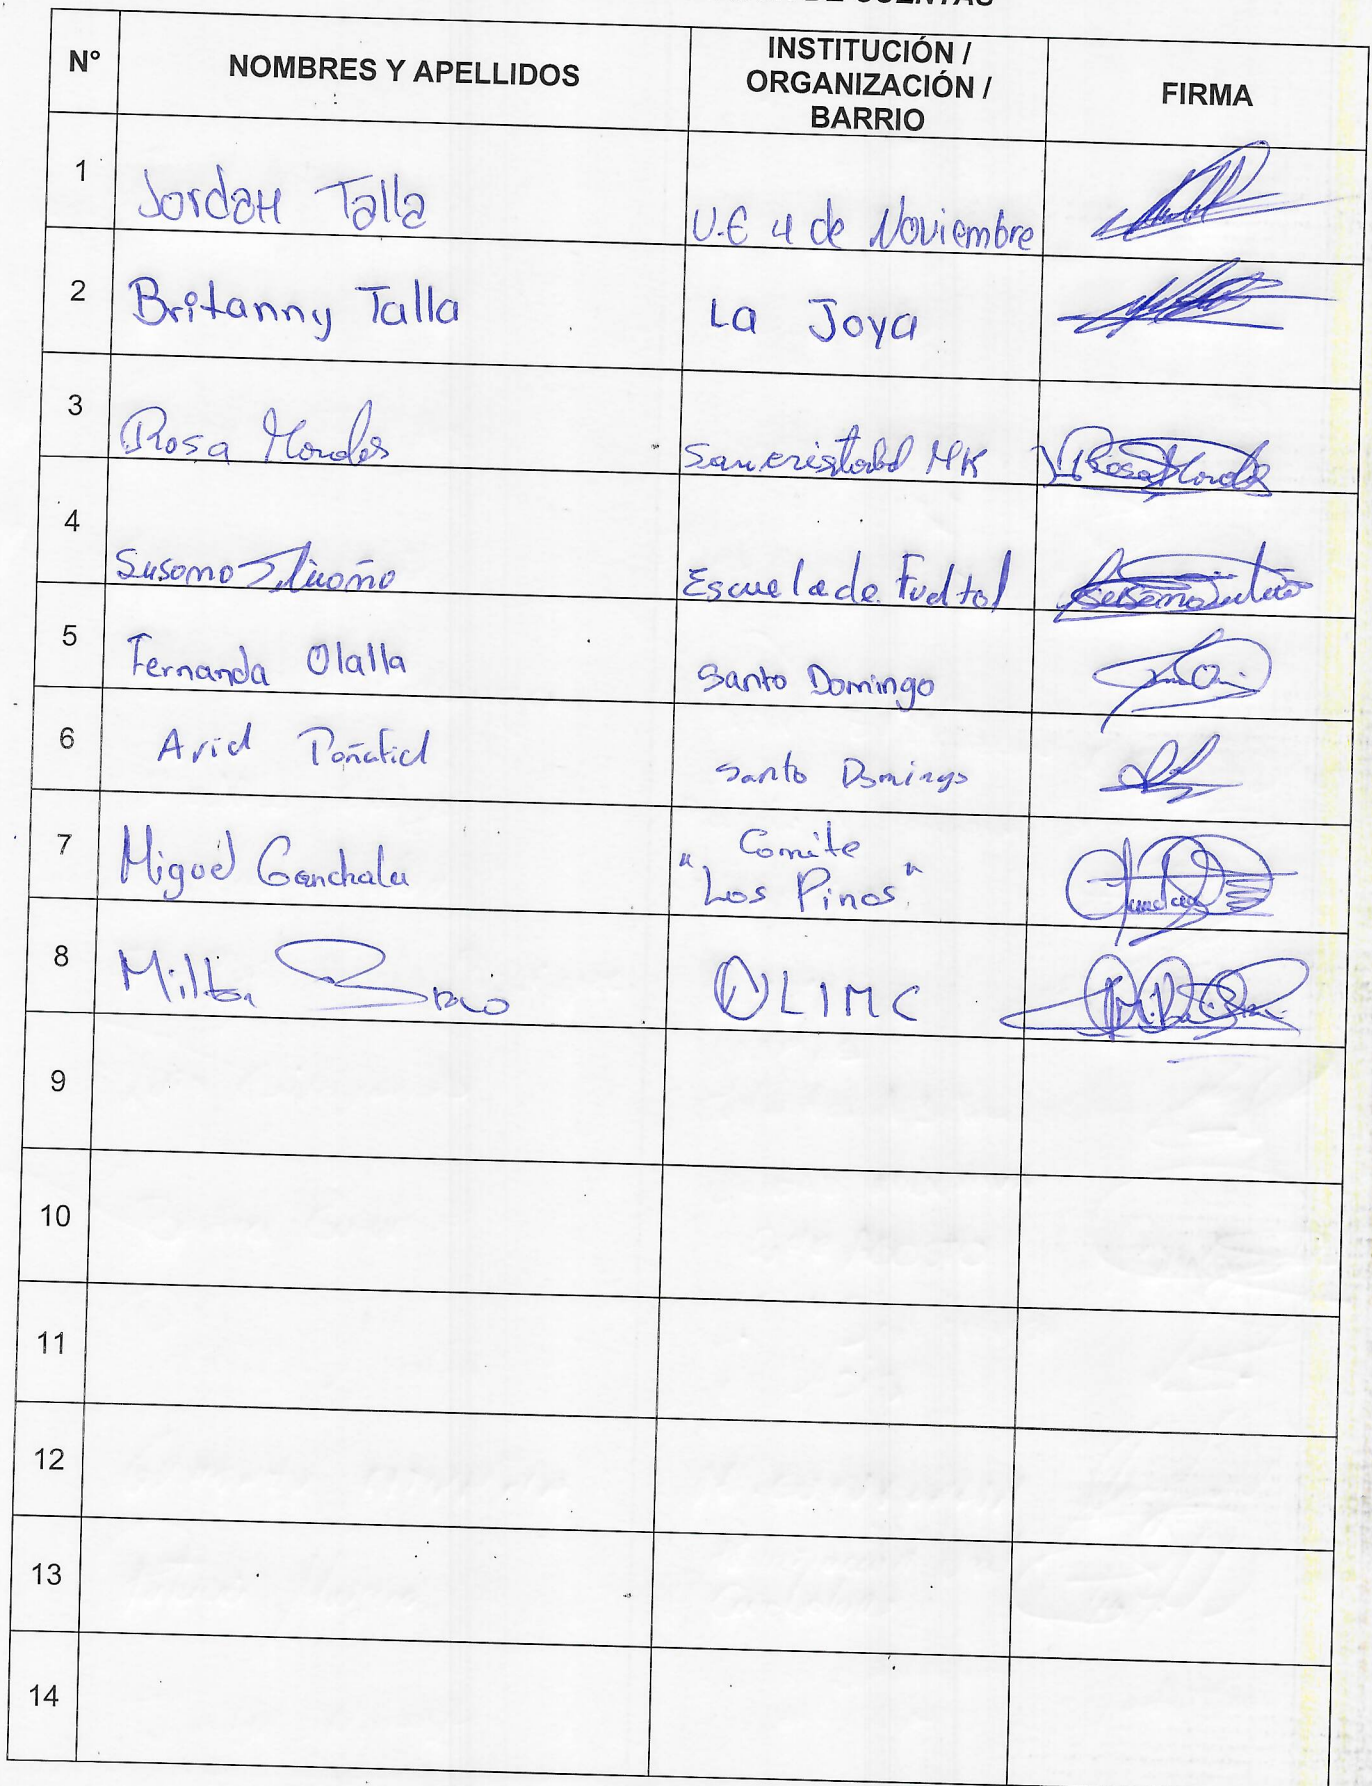 DE CUENTAS
N° NOMBRES Y APELLIDOS INSTITUCIÓN / ORGANIZACIÓN / BARRIO FIRMA
1 Jordan Talla U.E 4 de Noviembre
2 Britanny Talla La Joya
3 Rosa Morales San cristobal MK Rosa Morales
4 Susana Escuela de Fudtol
5 Fernanda Olalla Santo Domingo
6 Ariel Peñafiel Santo Domingo
7 Miguel Ganchala "Comite
Los Pinos"
8 Milton Bravo LIMC
9
10
11
12
13
14